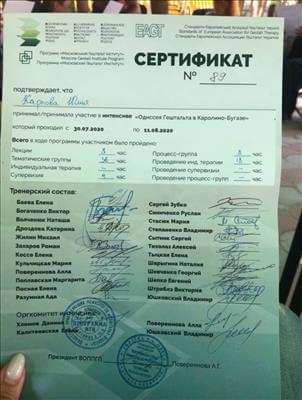 EAGT
Стандарты Европейской Ассоциации Гештальт терапии
Standards of European Association for Gestalt Therapy
Программа «Московский Гештальт Институт»
Moscow Gestalt Institute Program
СЕРТИФИКАТ
№ 89
подтверждает, что
принимал/принимала участие в интенсиве «Одиссея Гештальта в Каролино-Бугазе»
который проходил с 30.07.2020 по 11.08.2020
Всего в ходе программы участником было пройдено:
Лекции 8 час Процесс-группа 8 час
Тематические группы 36 час Проведение инд. терапии час
Индивидуальные сессии час Проведение супервизии — час
Супервизия час Проведение процесс-групп — час
Тренерский состав:
Баева Елена Сергей Зубко
Богаченко Виктор Синиченко Руслан
Волченко Наташа Стасик Мария
Дроздова Катерина Степаненко Владимир
Жилин Михаил Сытник Сергей
Захаров Роман Тиколаз Алексей
Коссе Елена Тыцкая Елена
Кульчицкая Мария Шарыгина Наталия
Повереннова Алла Шевченко Георгий
Поплавская Маргарита Шепко Евгений
Рева Елена Штриблев Виктор
Разумная Ада Юшковский Владимир
Оргкомитет интенсива:
Хломов Даниил Повереннова Алла
Калитеевская Елена Юшковский Владимир
Президент ВОППГП Повереннова А.Г.